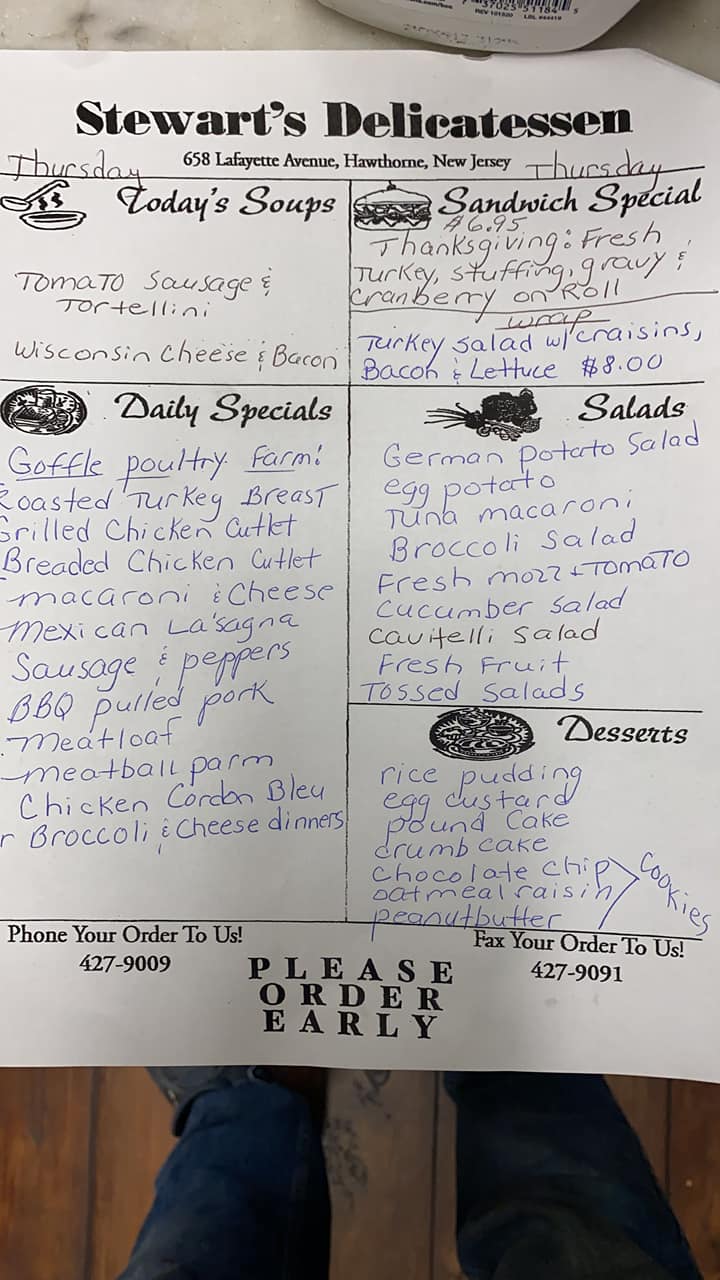 Stewart's Delicatessen
658 Lafayette Avenue, Hawthorne, New Jersey
Thursday
Thursday
Today's Soups
Tomato Sausage &
Tortellini
Wisconsin Cheese & Bacon
Sandwich Special
$6.95
Thanksgiving: Fresh
Turkey, stuffing, gravy &
Cranberry on Roll
wrap
Turkey Salad w/craisins,
Bacon & Lettuce $8.00
Daily Specials
Goffle poultry Farm!
Roasted Turkey Breast
Grilled Chicken Cutlet
Breaded Chicken Cutlet
macaroni & Cheese
Mexican La'sagna
Sausage & peppers
BBQ pulled pork
meatloaf
meatball parm
Chicken Cordon Bleu
r Broccoli & Cheese dinners
Salads
German Potato Salad
egg potato
Tuna macaroni
Broccoli Salad
Fresh mozz + Tomato
Cucumber Salad
Cavitelli Salad
Fresh Fruit
Tossed Salads
Desserts
rice pudding
egg custard
pound Cake
crumb cake
Chocolate chip
oatmeal raisin
peanutbutter
Cookies
Phone Your Order To Us!
427-9009
PLEASE
ORDER
EARLY
Fax Your Order To Us!
427-9091